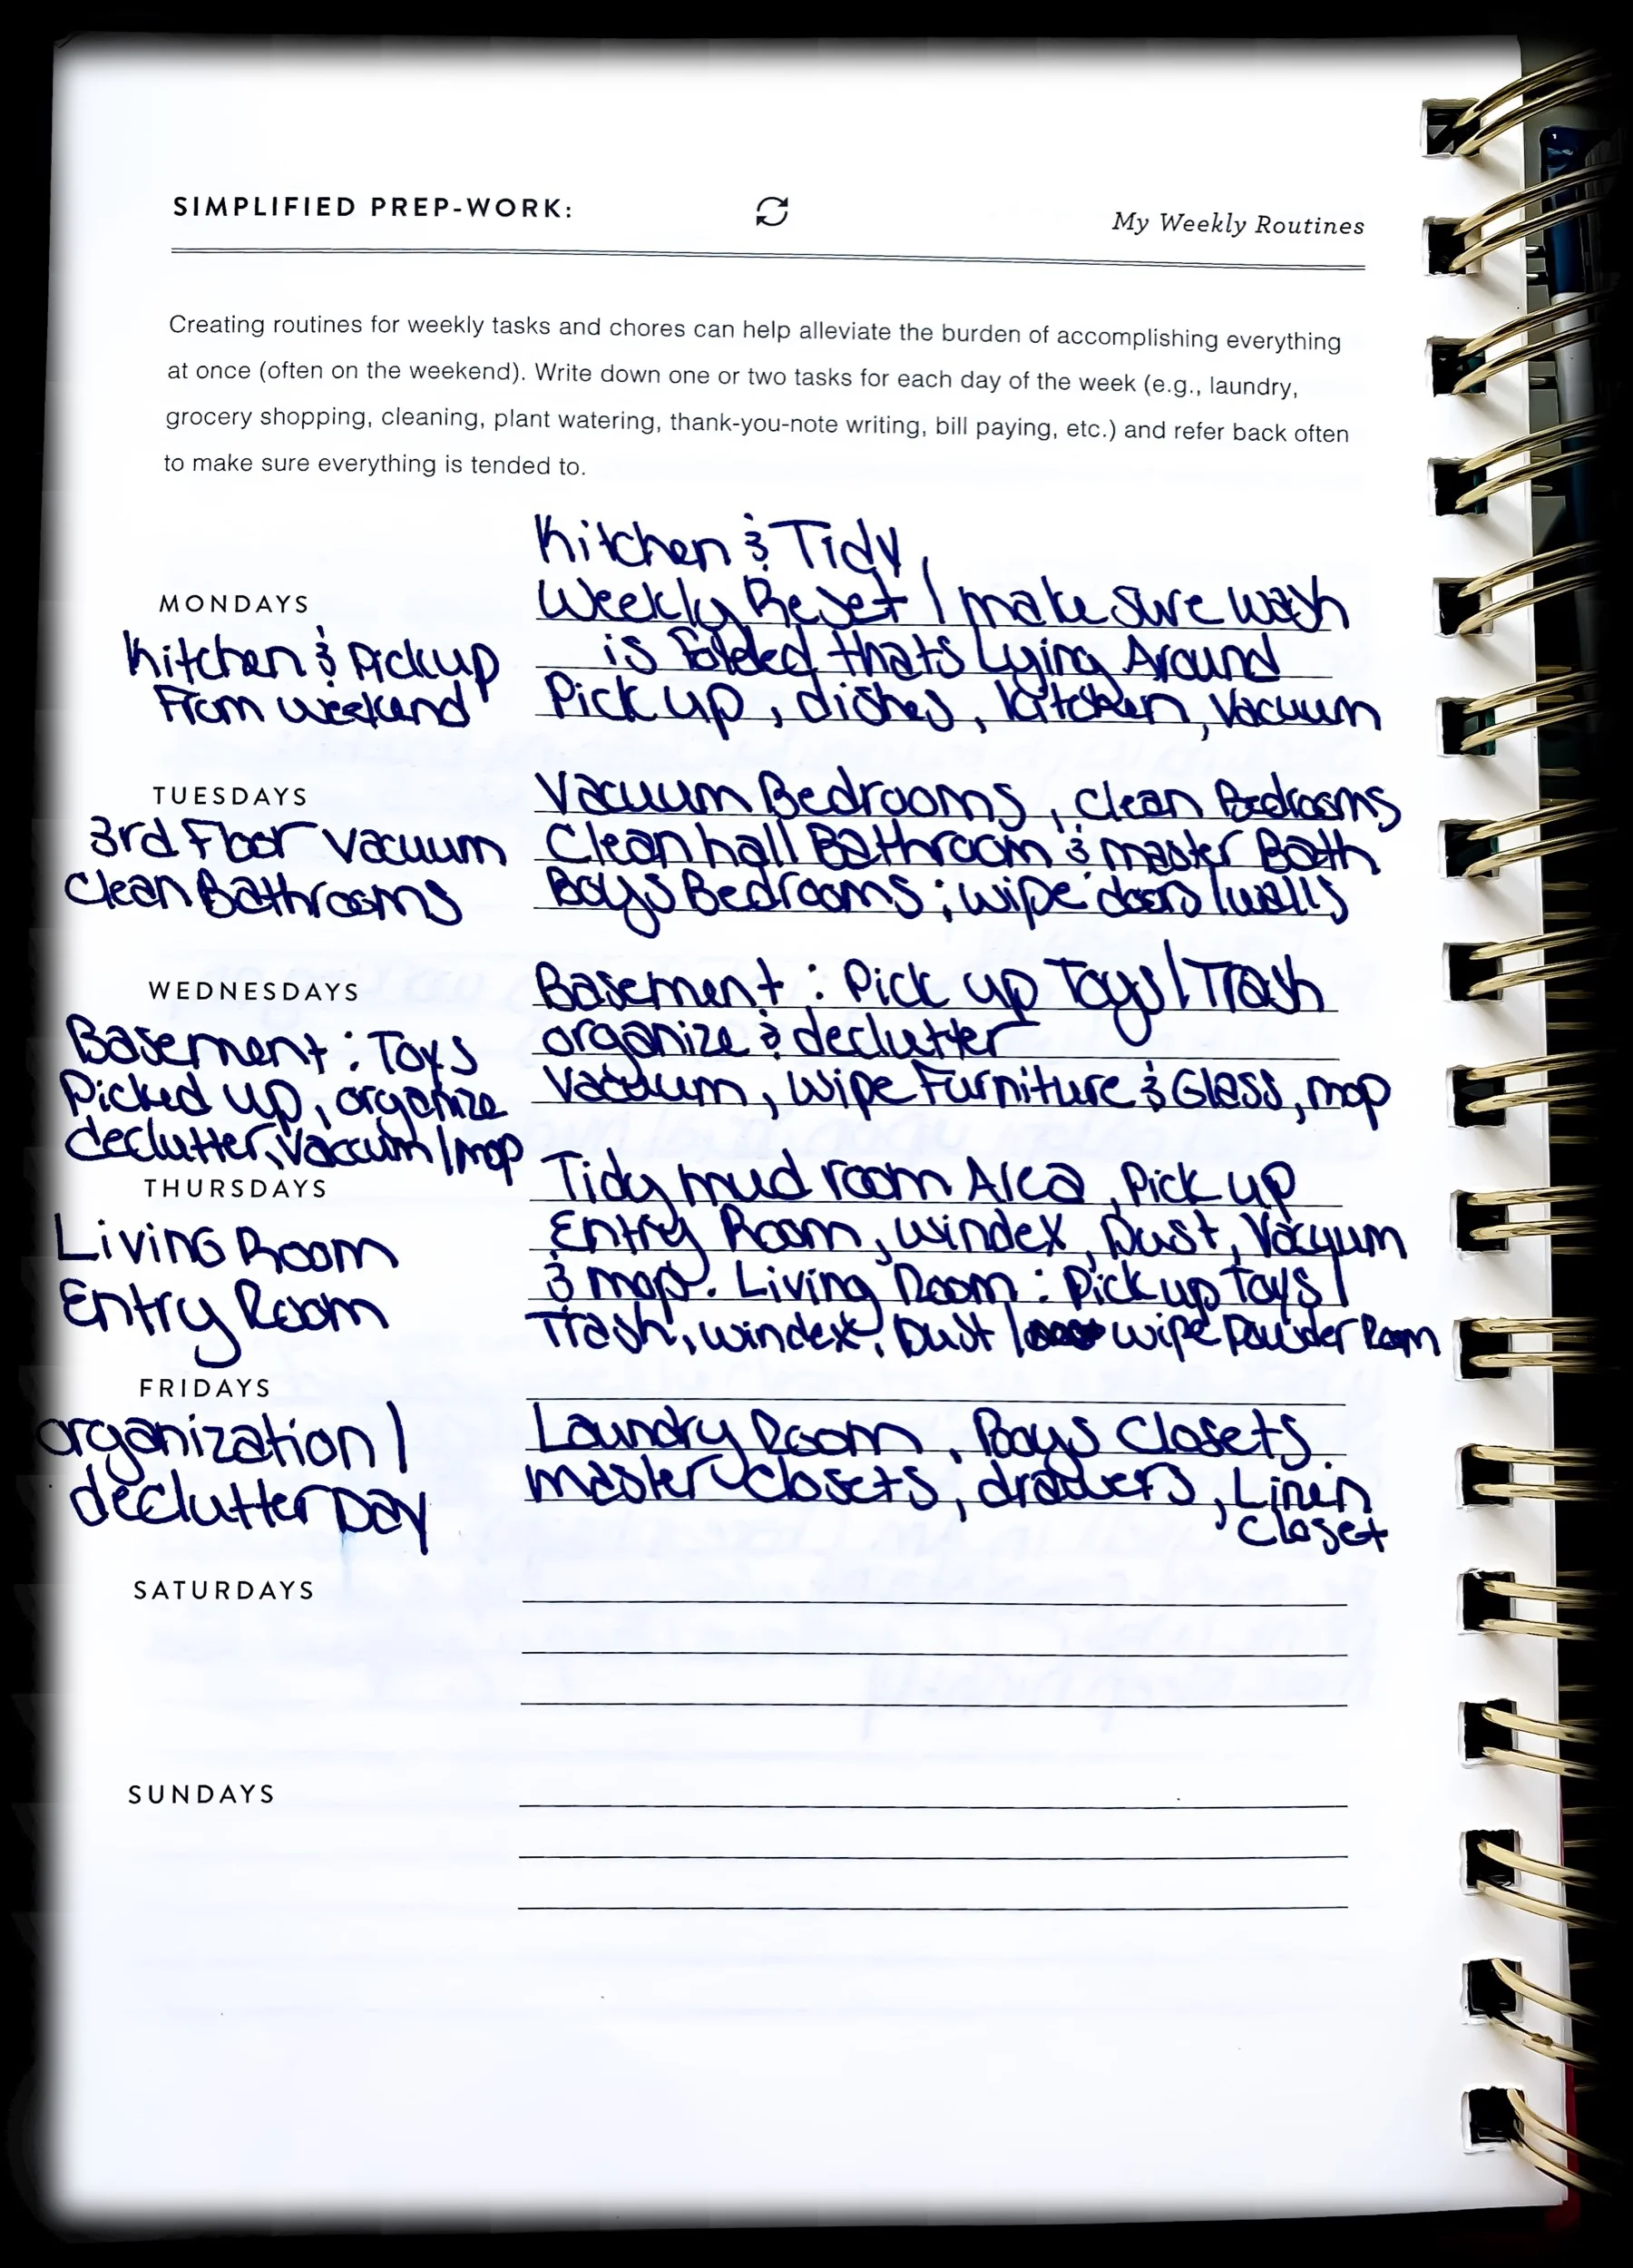 SIMPLIFIED PREP-WORK:
My Weekly Routines
Creating routines for weekly tasks and chores can help alleviate the burden of accomplishing everything
at once (often on the weekend). Write down one or two tasks for each day of the week (e.g., laundry,
grocery shopping, cleaning, plant watering, thank-you-note writing, bill paying, etc.) and refer back often
to make sure everything is tended to.
Kitchen & Tidy
MONDAYS
Weekly Reset / make sure wash
Kitchen & Pickup
is folded thats Lying Around
From weekend
Pick up, dishes, Kitchen, Vacuum
TUESDAYS
Vacuum Bedrooms, clean Bedrooms
3rd Floor Vacuum
Clean hall Bathroom & master Bath
Clean Bathrooms
Boys Bedrooms; wipe doors/walls
WEDNESDAYS
Basement: Pick up Toys/Trash
Basement: Toys
organize & declutter
Picked up, organize
Vacuum, wipe Furniture & Glass, mop
declutter, Vaccum/mop
THURSDAYS
Tidy mud room Area, Pick up
Living Room
Entry Room, windex, Dust, Vacyum
Entry Room
& mop. Living Room: Pick up Toys/
Trash, windex, Dust / wipe Powder Room
FRIDAYS
organization/
Laundry Room, Boys Closets.
declutter Day
master closets, drawers, Linen
closet
SATURDAYS
SUNDAYS